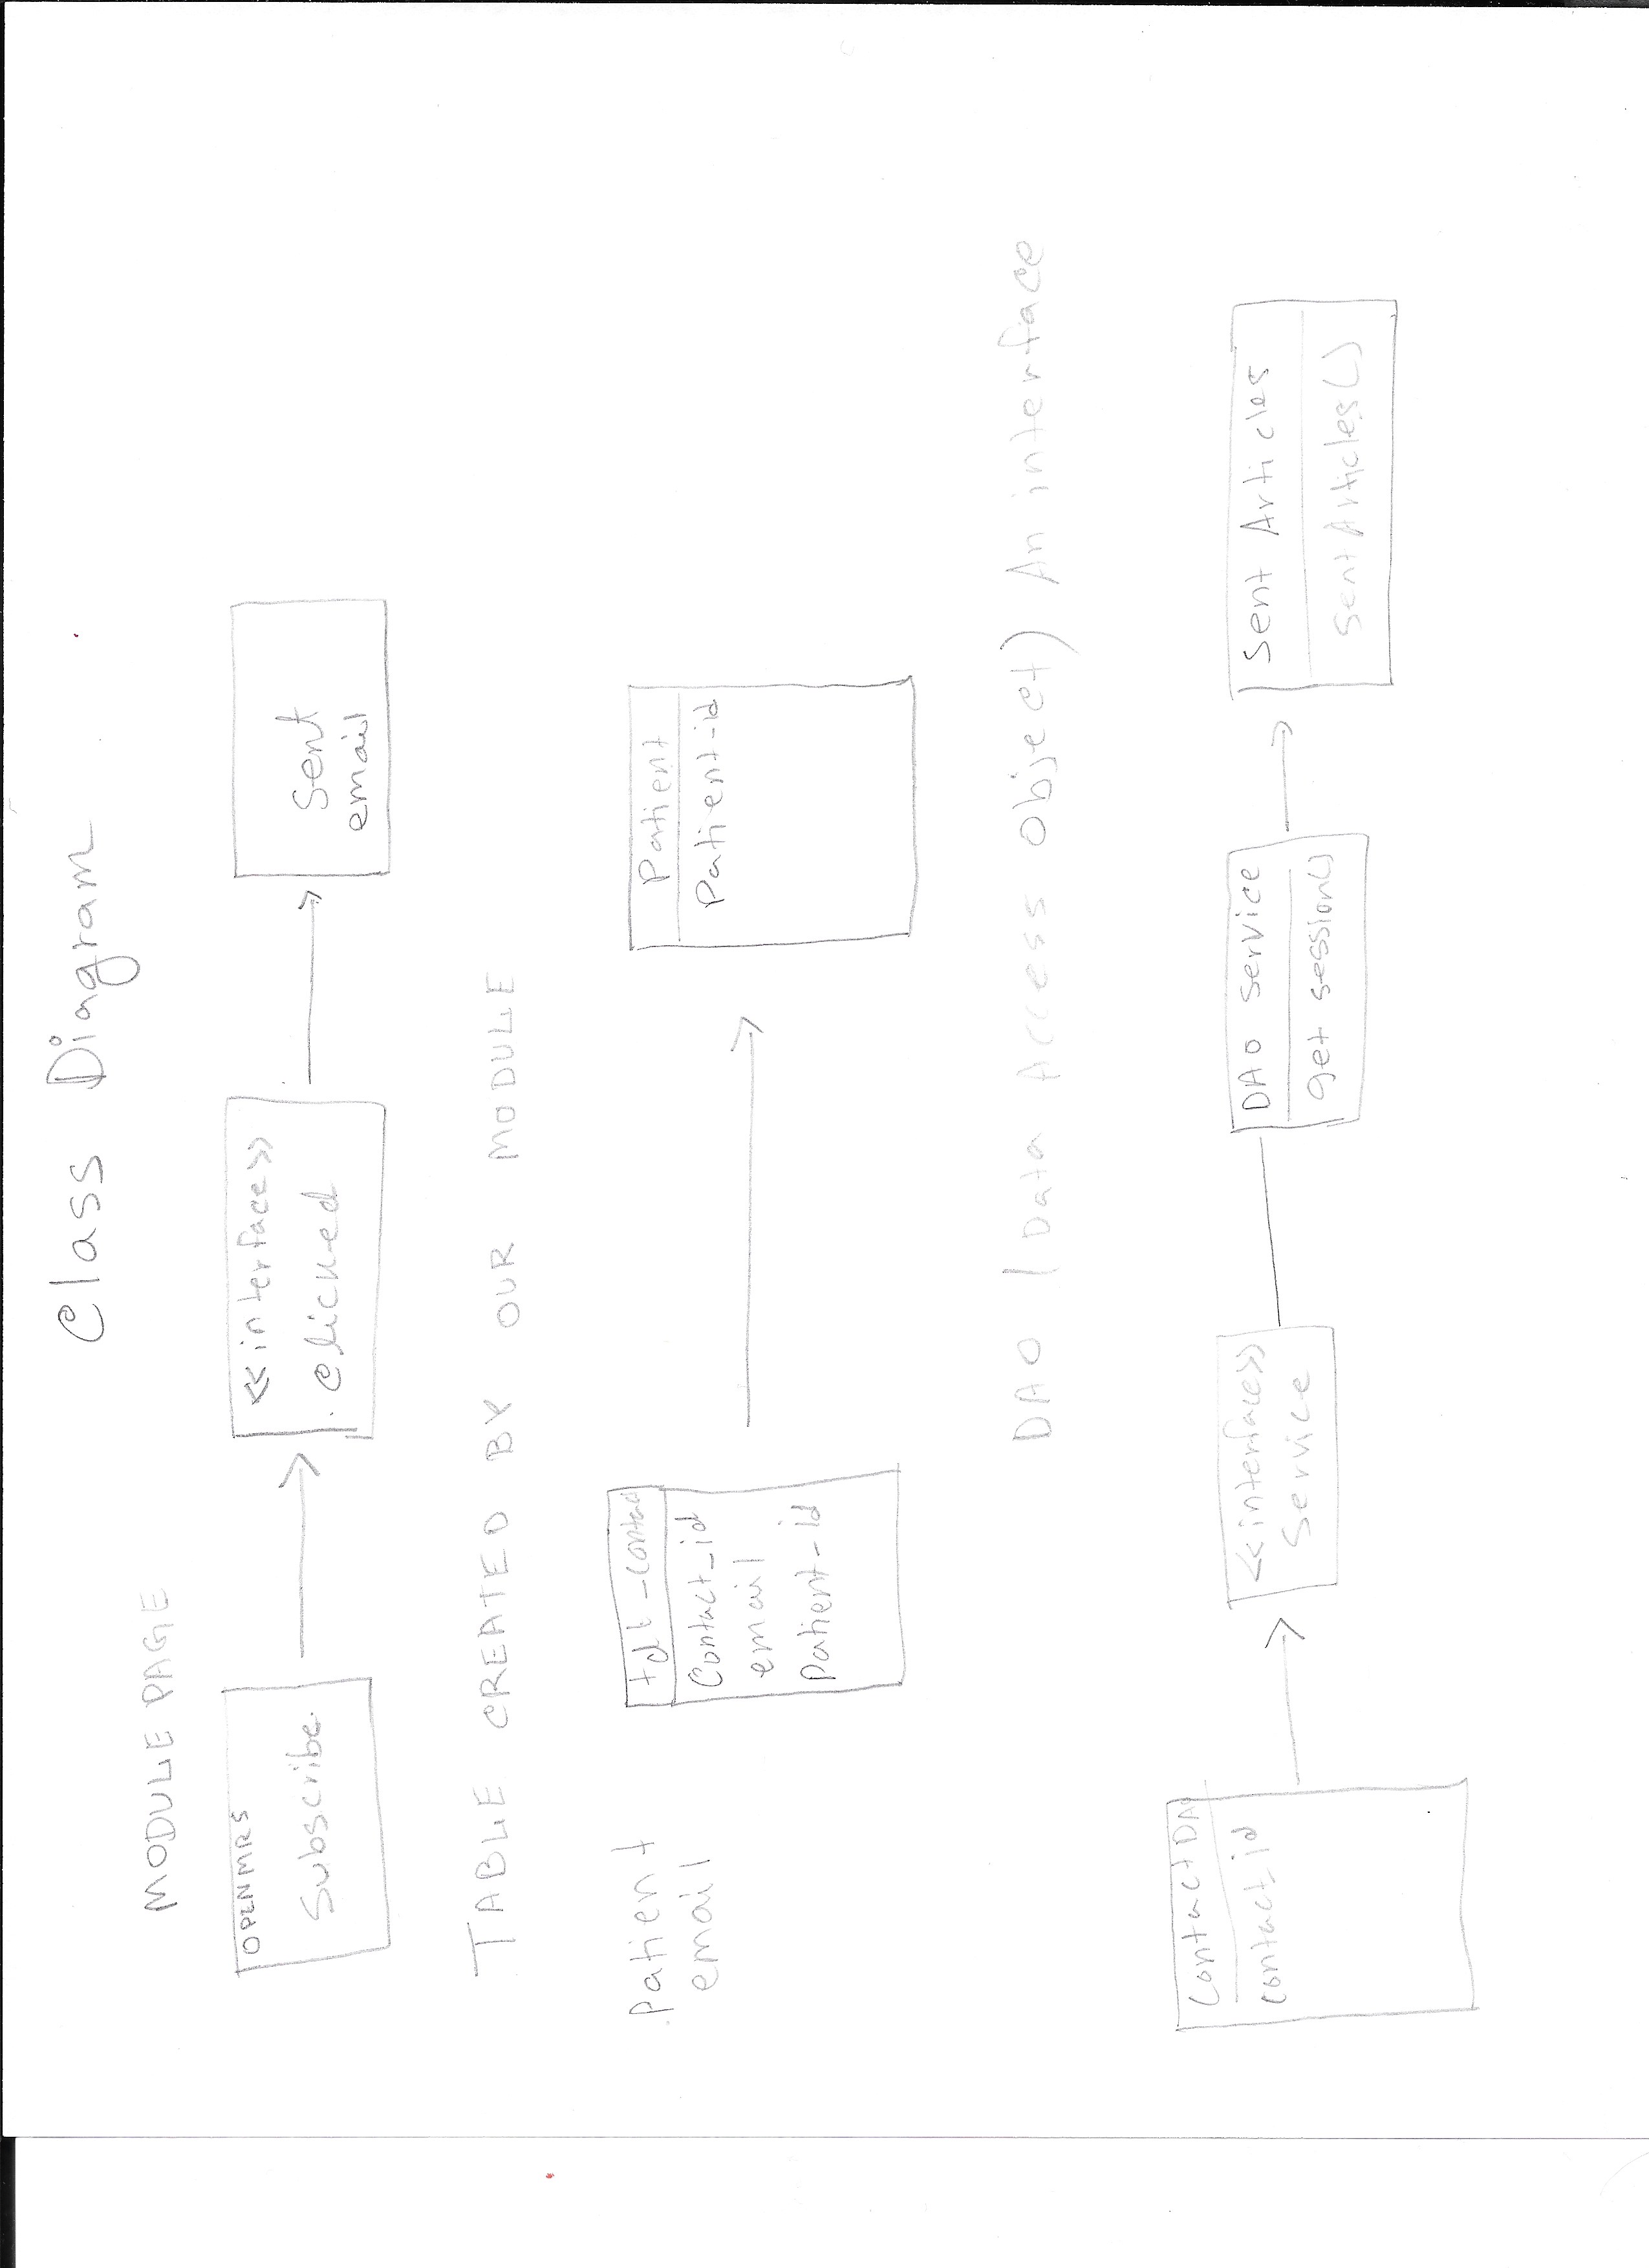 Class Diagram
MODULE PAGE
OPENMRS
Subscribe
<<interface>>
clicked
Sent
email
TABLE CREATED BY OUR MODULE
Patient
email
Contact_id
email
Patient-id
Patient
Patient-id
DAO (Data Access Object) An interface
ContactDAO
contact_id
<<interface>>
Service
DAO Service
get session()
Sent Articles
Sent Articles()